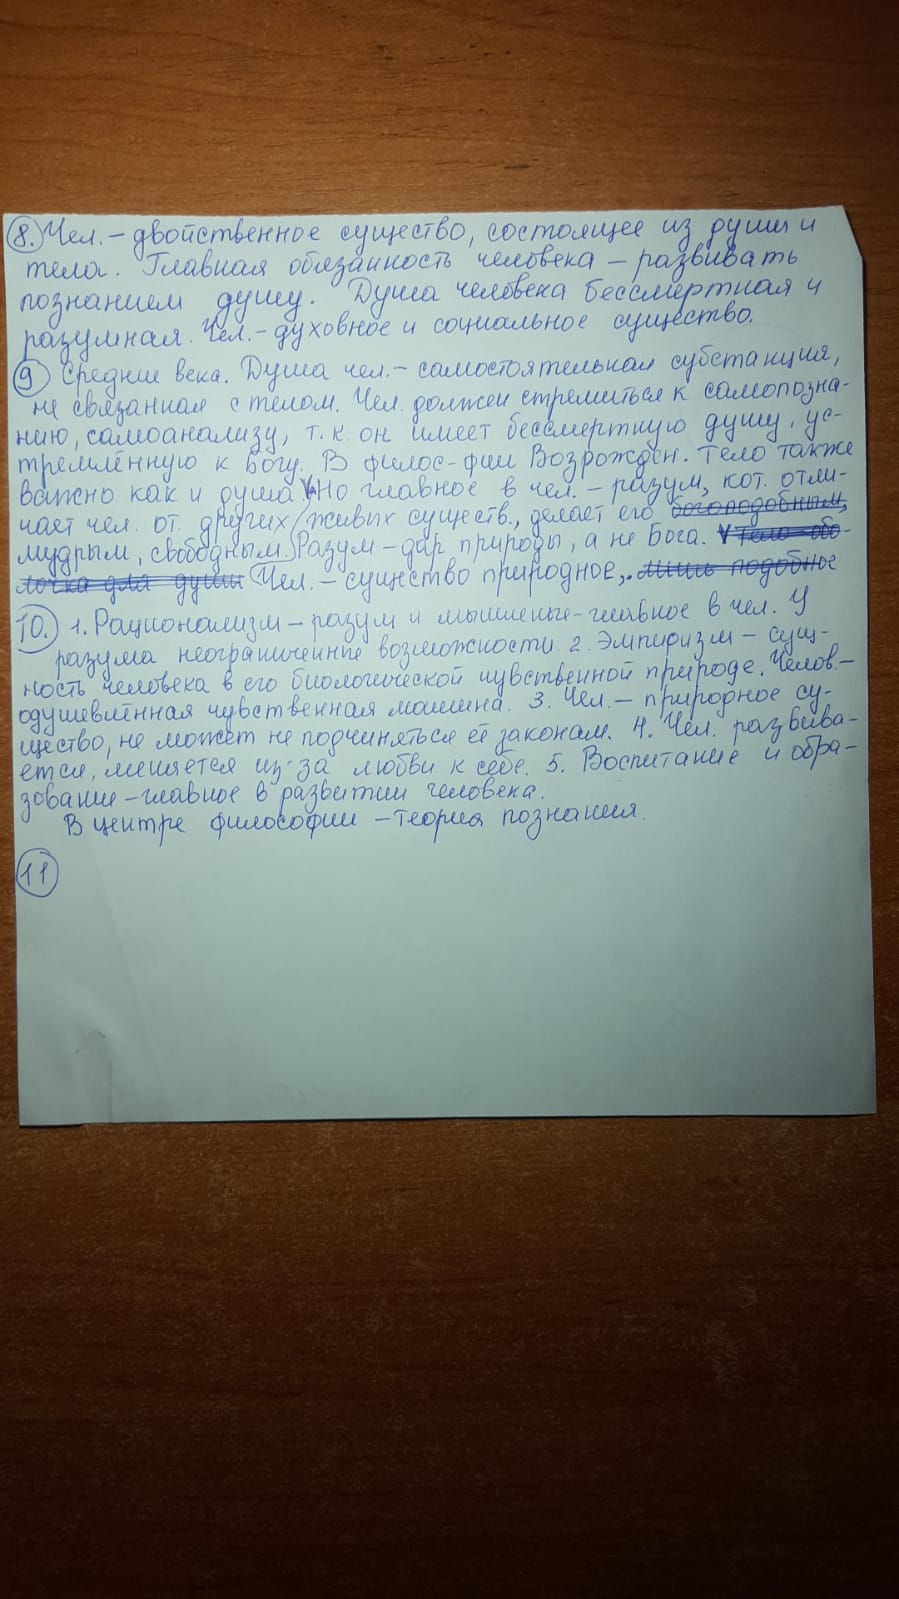 8. Чел. – двойственное существо, состоящее из души и
тела. Главная обязанность человека – развивать
познанием душу. Душа человека бессмертная и
разумная. Чел. – духовное и социальное существо.
9 Средние века. Душа чел. – самостоятельная субстанция,
не связанная с телом. Чел. должен стремиться к самопозна-
нию, самоанализу, т.к. он имеет бессмертную душу, ус-
тремлённую к Богу. В филос-фии Возрожден. тело также
важно как и душа. Но главное в чел. – разум, кот. отли-
чает чел. от других живых существ., делает его богоподобным,
мудрым, свободным. Разум – дар природы, а не Бога. Тело – обо-
лочка для души Чел. – существо природное, лишь подобное
10. 1. Рационализм – разум и мышление – главное в чел. У
разума неограниченные возможности. 2. Эмпиризм – сущ-
ность человека в его биологической чувственной природе. Челов. –
одушевлённая чувственная машина. 3. Чел. – природное су-
щество, не может не подчиняться её законам. 4. Чел. развива-
ется, меняется из-за любви к себе. 5. Воспитание и обра-
зование – главное в развитии человека.
В центре философии – теория познания.
11